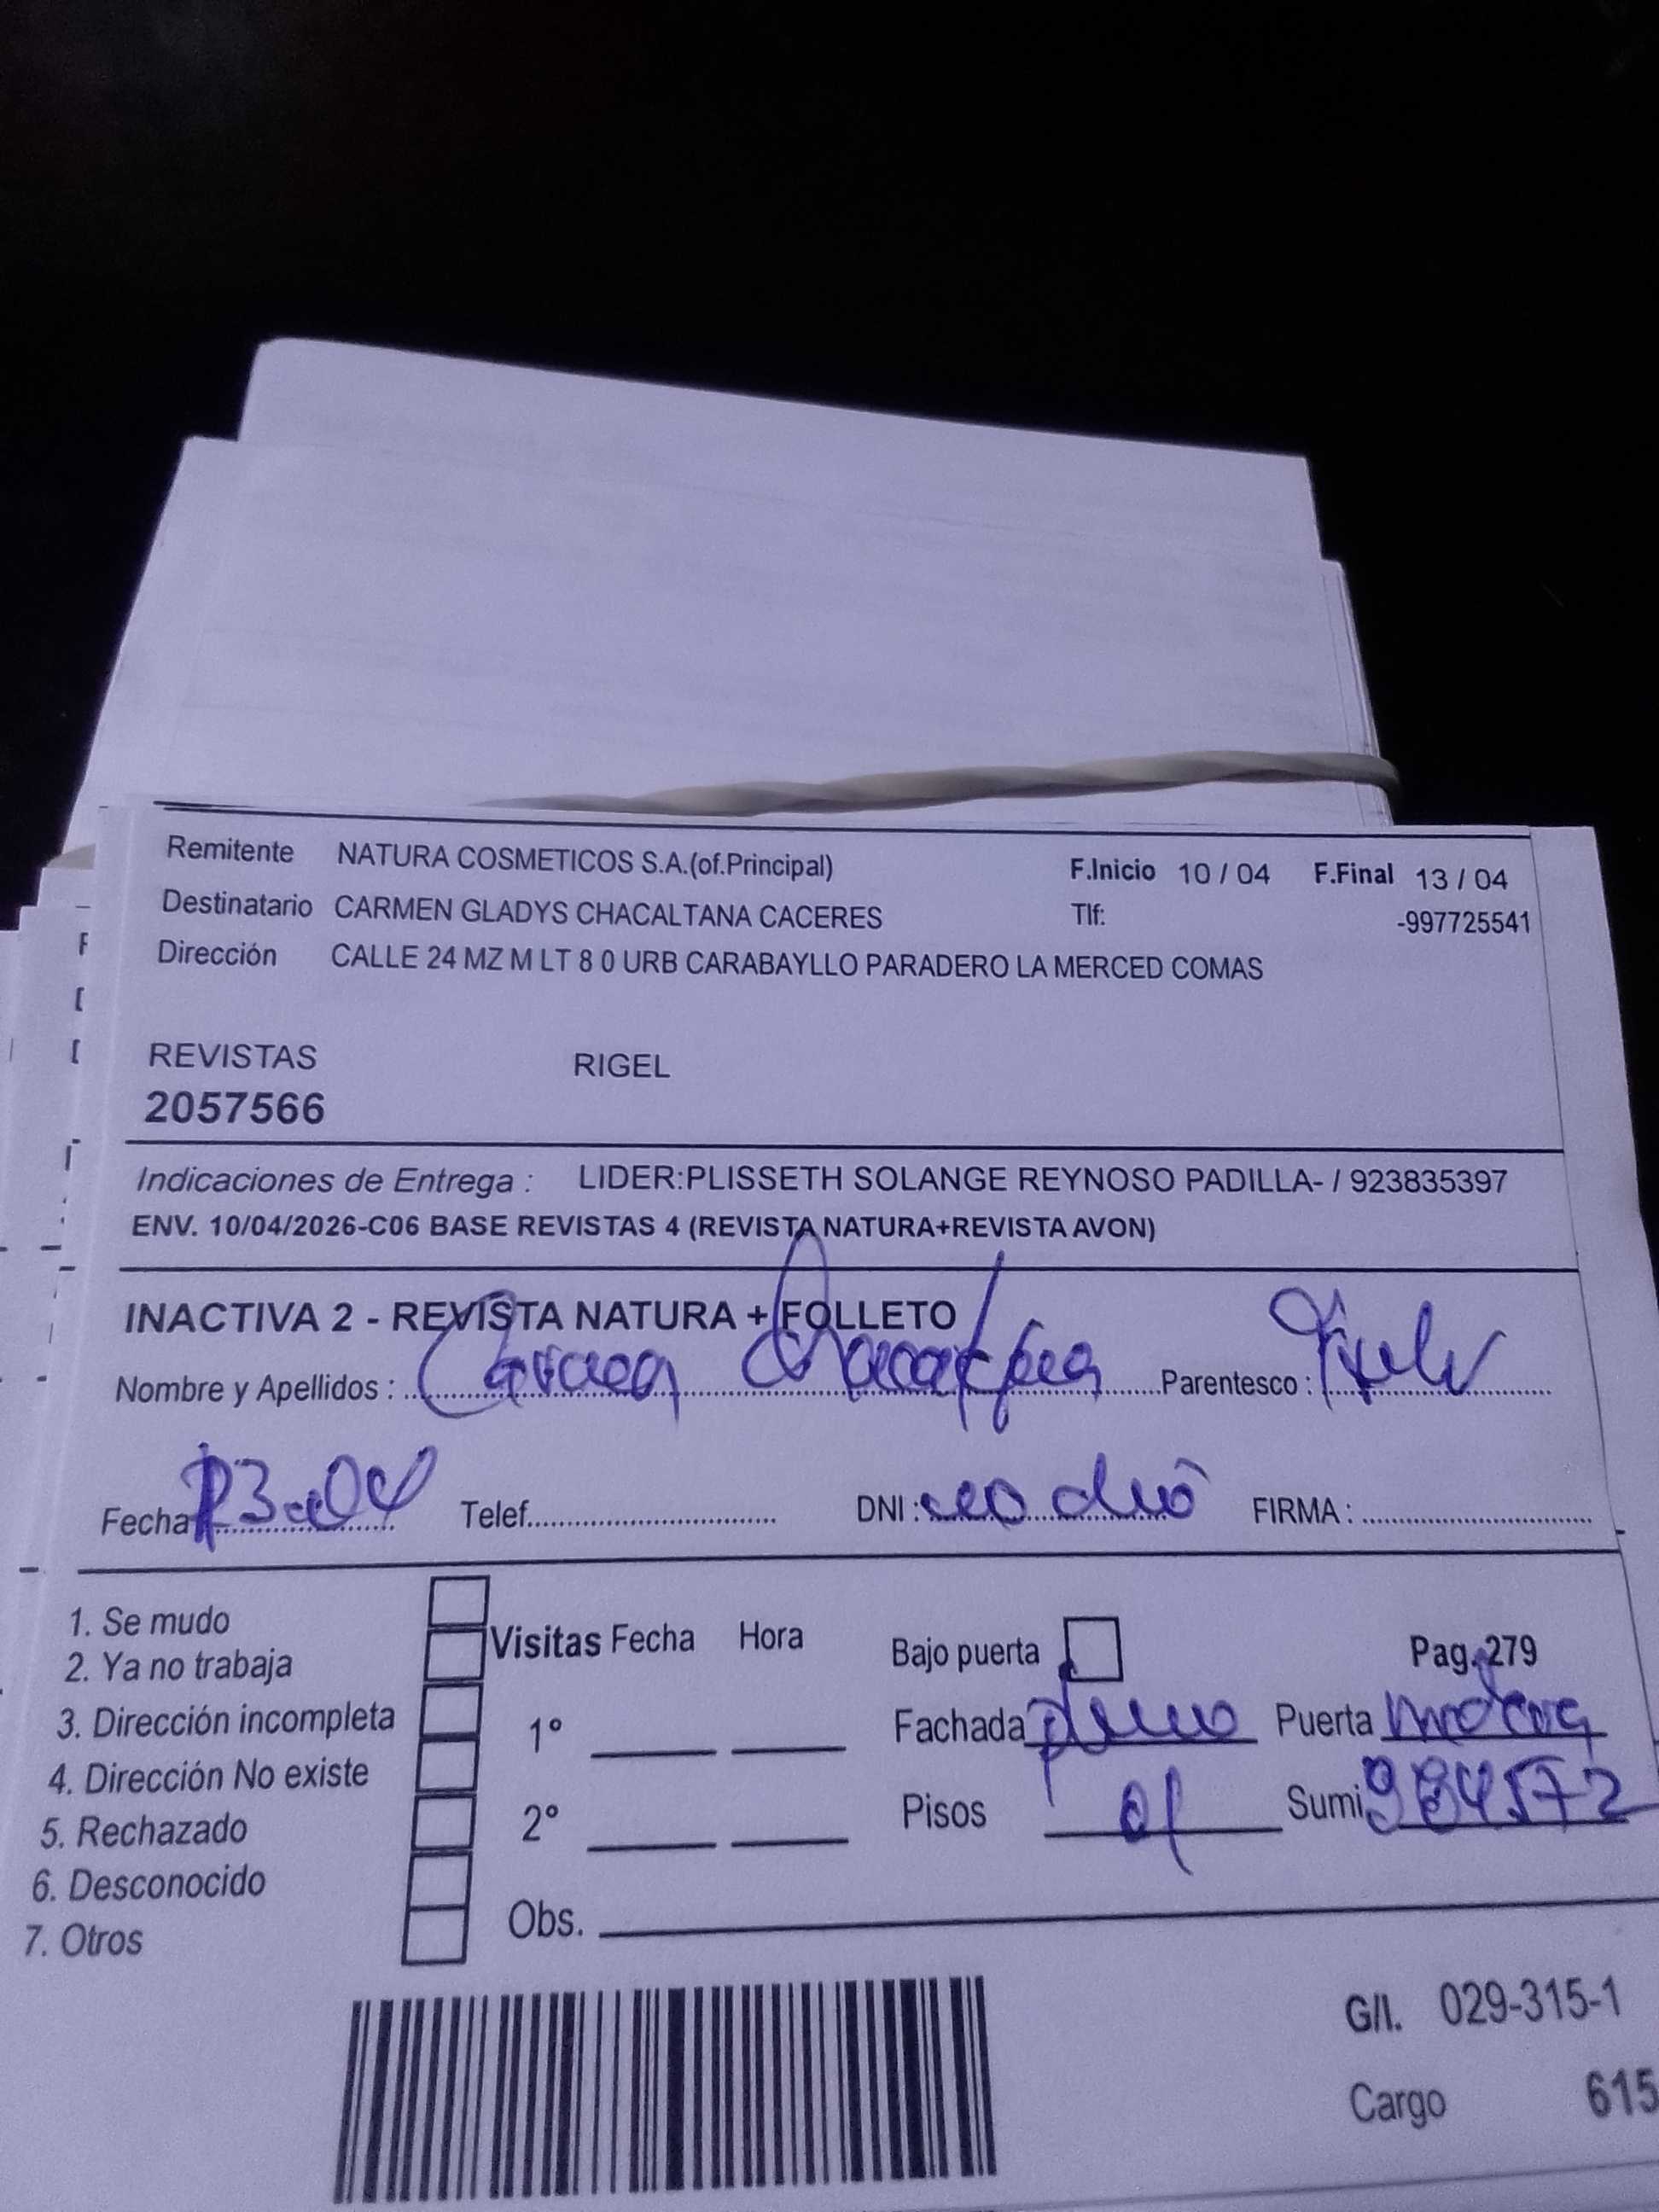 Remitente NATURA COSMETICOS S.A.(of.Principal) F.Inicio 10 / 04 F.Final 13 / 04
Destinatario CARMEN GLADYS CHACALTANA CACERES Tlf: -997725541
Dirección CALLE 24 MZ M LT 8 0 URB CARABAYLLO PARADERO LA MERCED COMAS
REVISTAS RIGEL
2057566
Indicaciones de Entrega : LIDER:PLISSETH SOLANGE REYNOSO PADILLA- / 923835397
ENV. 10/04/2026-C06 BASE REVISTAS 4 (REVISTA NATURA+REVISTA AVON)
INACTIVA 2 - REVISTA NATURA + FOLLETO
Nombre y Apellidos : Parentesco :
Fecha 13-04 Telef. DNI : no dio FIRMA :
1. Se mudo
2. Ya no trabaja
3. Dirección incompleta
4. Dirección No existe
5. Rechazado
6. Desconocido
7. Otros
Visitas Fecha Hora
1°
2°
Obs.
Bajo puerta Pag. 279
Fachada Puerta
Pisos 01 Sumi 984572
G/I. 029-315-1
Cargo 615